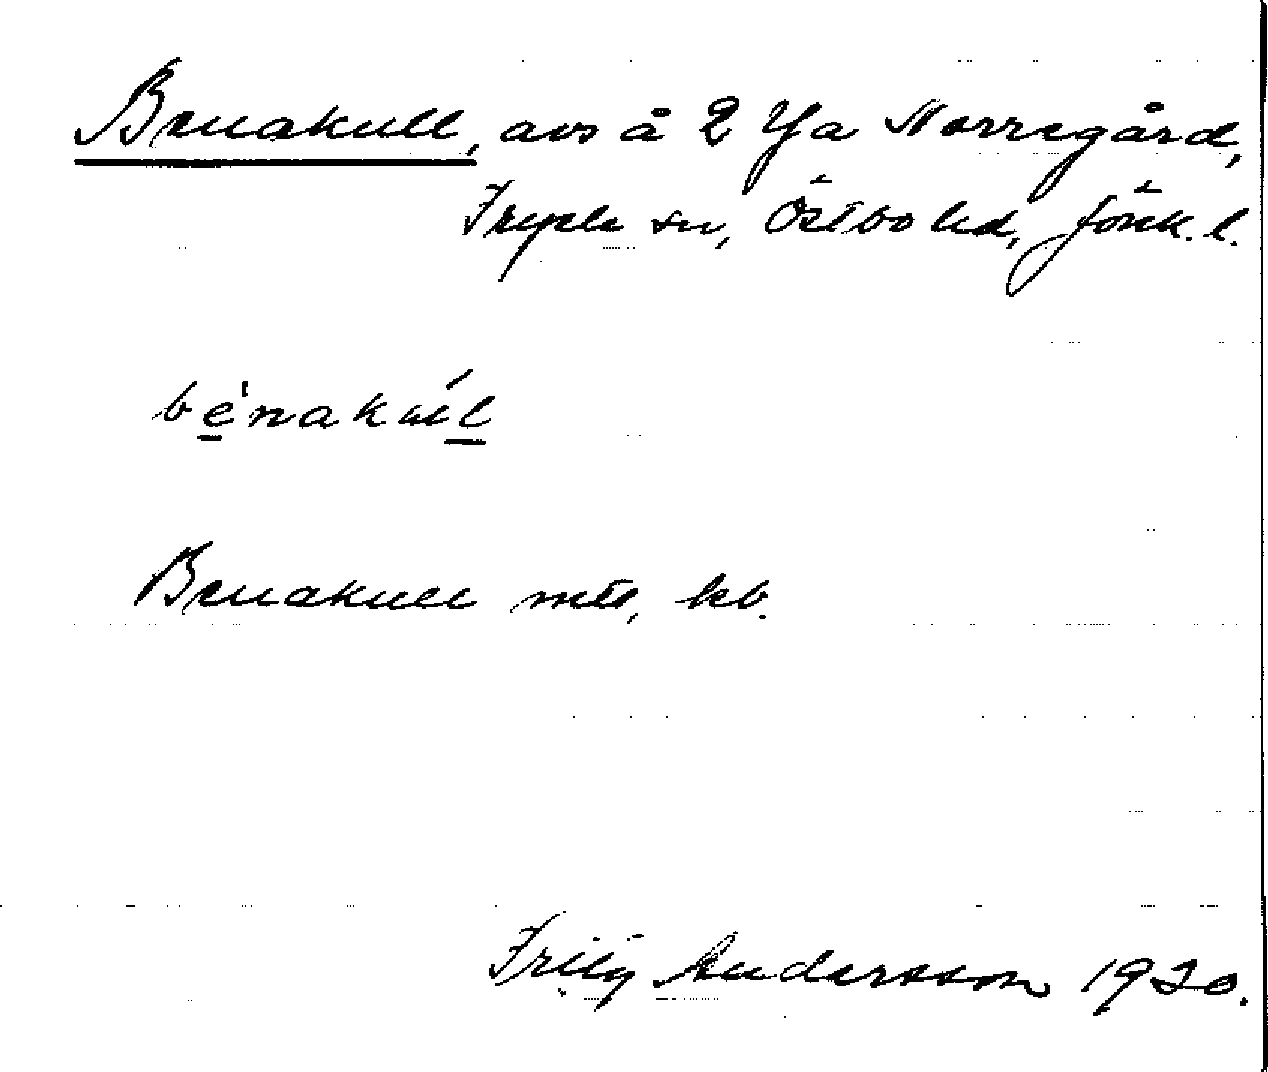 Benakull, avs å 2 Ya Norregård,
Fryele sn, Östbo hd, Jönk. l.
be̱'nakúḻ
Benakull mtl, kb.
Fritz Andersson 1920.